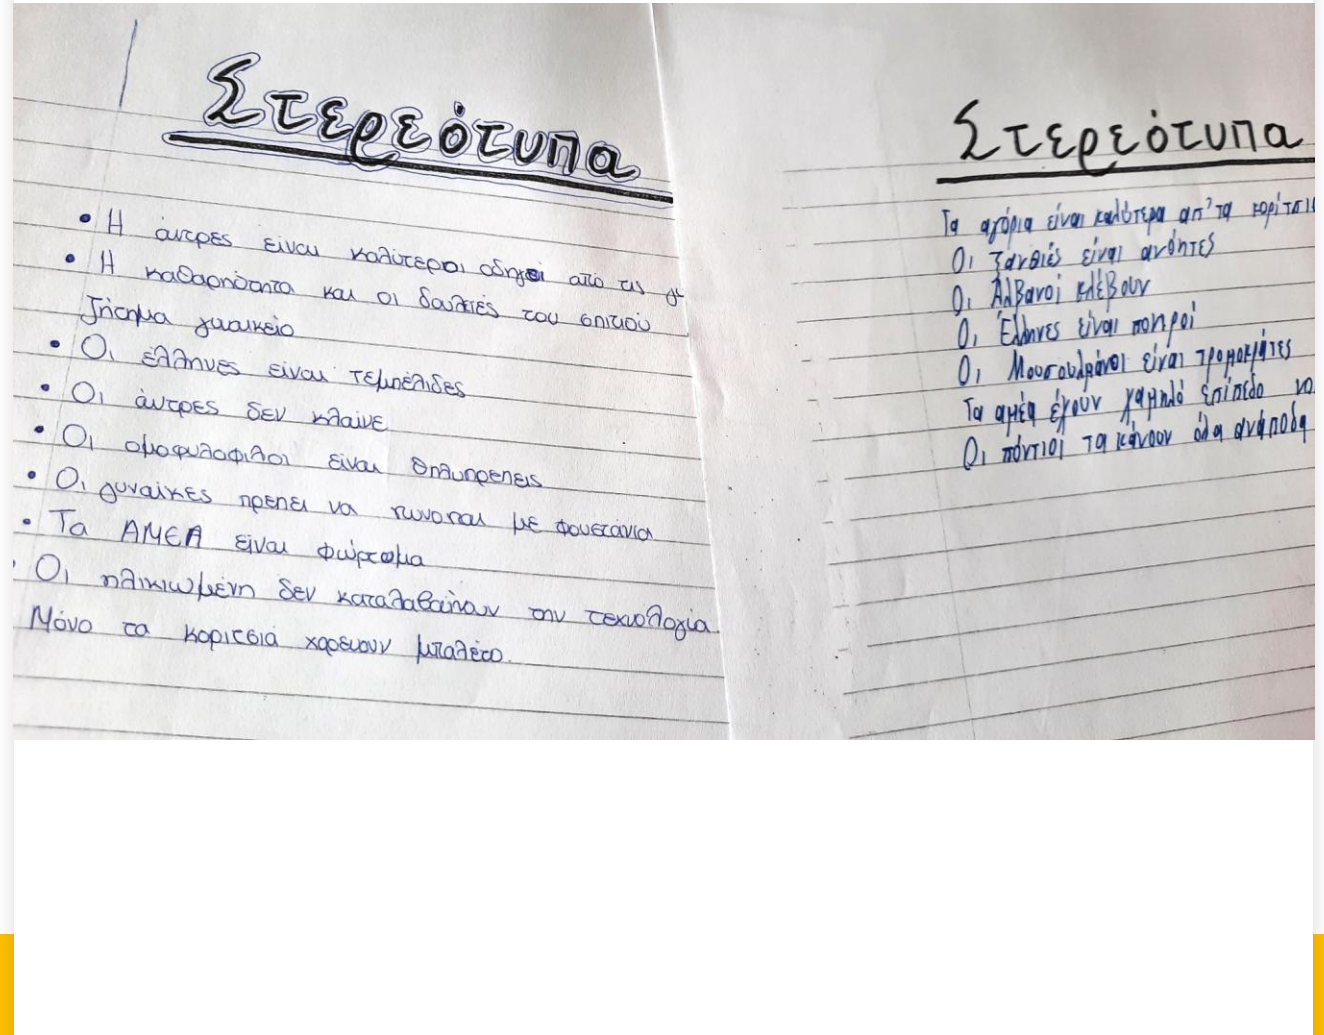 Στερεότυπα
• Η άντρες είναι καλύτεροι οδηγοί από τις
• Η καθαριότητα και οι δουλειές του σπιτιού
ζήτημα γυαικείο
• Οι έλληνες είναι τεμπέλιδες
• Οι άντρες δεν κλαίνε
• Οι ομοφυλοφιλοι είναι θηλυπρεπεις
• Οι γυναίκες πρεπει να με φουστάνια
• Τα ΑΜΕΑ είναι φώρτωμα
• Οι ηλικιωμένη δεν καταλαβαίνουν την τεχνολογία
Μόνο τα κοριτσιά χορευουν μπαλέτο.
Στερεότυπα
Τα αγόρια είναι καλύτερα απ' τα
Οι ξανθιές είναι ανόητες
Οι Αλβανοί κλέβουν
Οι Έλληνες είναι πονηροί
Οι Μουσουλμάνοι είναι τρομοκράτες
Τα αμέα έχουν χαμηλό επίπεδο
Οι πόντιοι τα κάνουν όλα ανάποδα